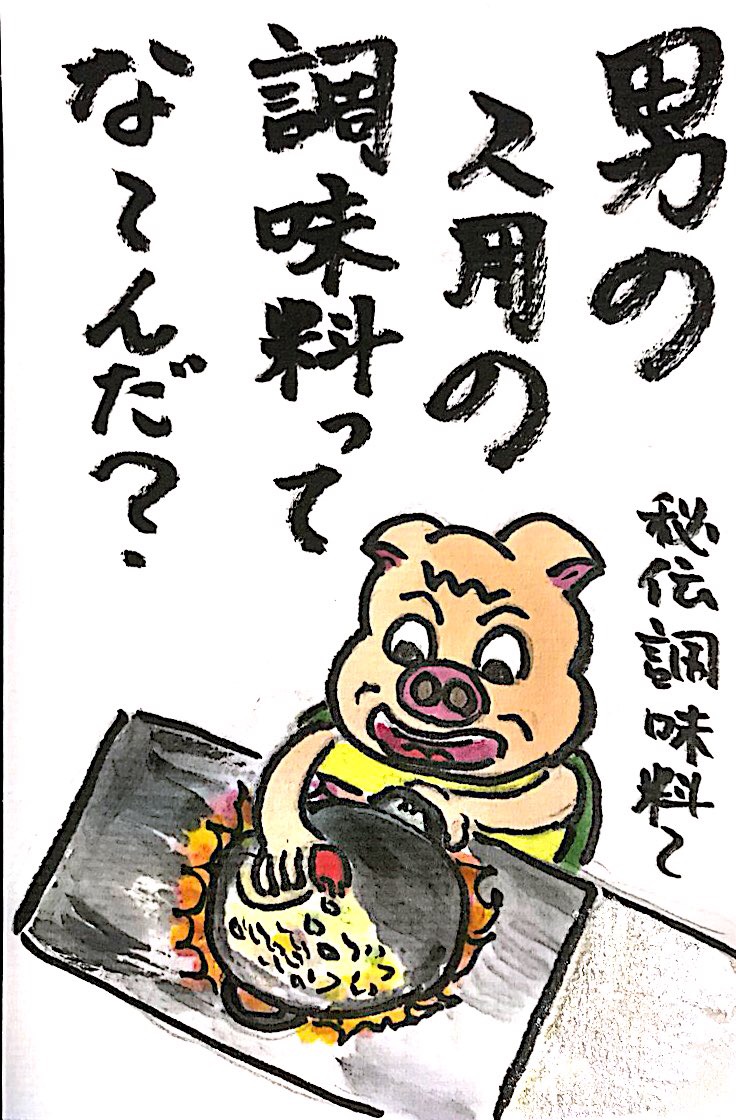 男の
入用の
調味料って
なってんだ?
秘伝調味料〜